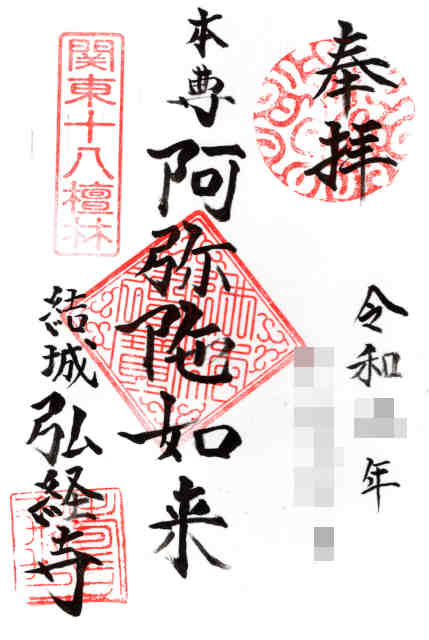 奉拝
令和
年
本尊
阿弥陀如来
関東十八檀林
結城
弘経寺